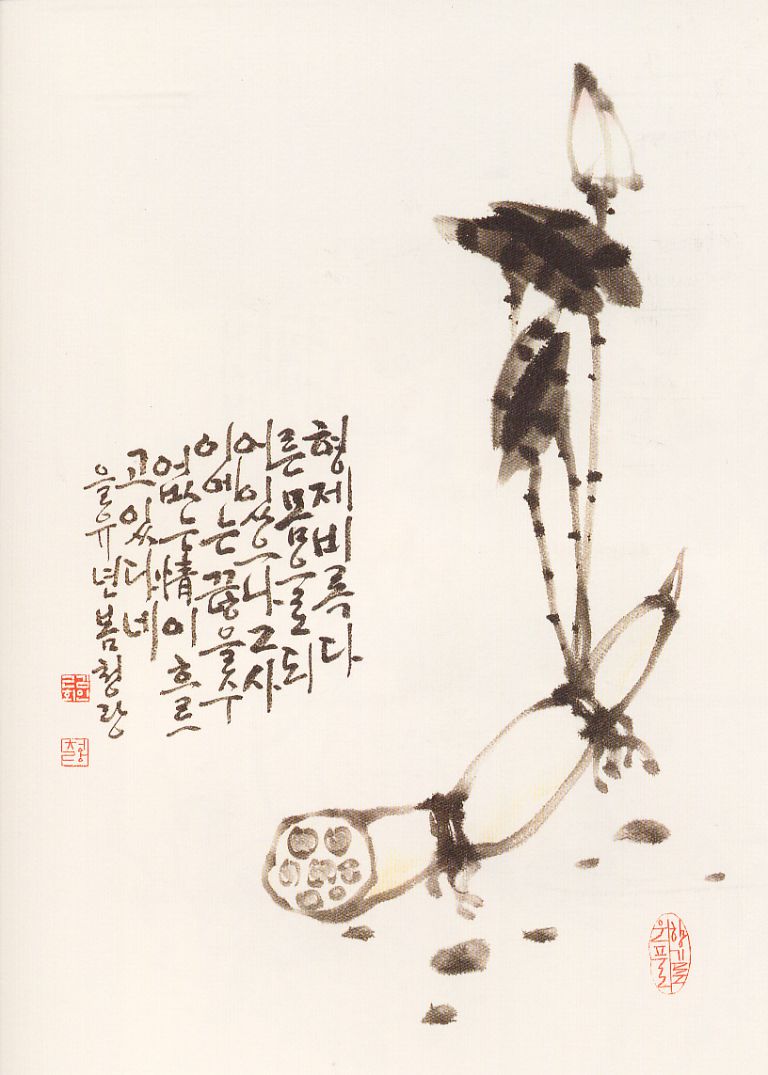 형제비록다
른몸으로되
어있으나그사
이에는끊을수
없는情이흐르
고있다네
을유년봄청랑
향기로
운풀